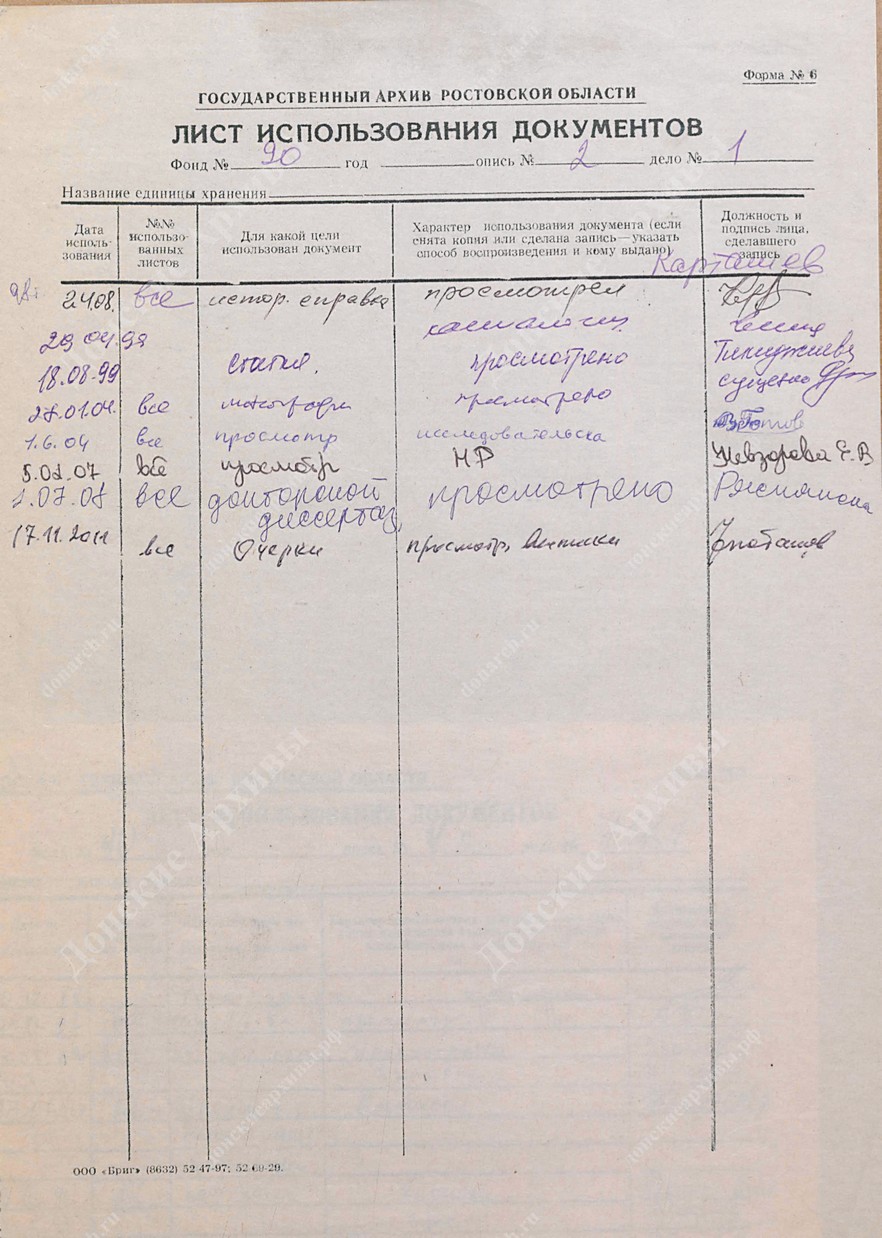 Форма № 6
ГОСУДАРСТВЕННЫЙ АРХИВ РОСТОВСКОЙ ОБЛАСТИ
ЛИСТ ИСПОЛЬЗОВАНИЯ ДОКУМЕНТОВ
Фонд № 90 год опись № 2 дело № 1
Название единицы хранения
Дата исполь-зования
№№ использо-ванных листов
Для какой цели использован документ
Характер использования документа (если снята копия или сделана запись—указать способ воспроизведения и кому выдано)
Должность и подпись лица, сделавшего запись
Карташев
98г. 24.08. все истор. справка просмотрел
29.04.99
18.08.99 статья. просмотрено
27.01.04. все монографи просмотрено Сущенко
1.6.04 все просмотр исследовательска
5.02.07 все просмотр НР Невзорова Е.В
.07.07 все докторской диссертац. просмотрено
17.11.2011 все Очерки просмотр, выписки
ООО «Бриг» (8632) 52-47-97; 52-69-29.
Донские Архивы
Донские Архивы
donarch.ru
donarch.ru
донскиеархивы.рф
донскиеархивы.рф